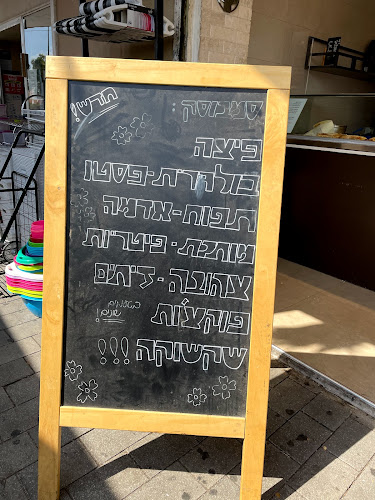 חדש!
סמבוסק:
פיצה
בולגרית-פסטו
תפוח-אדמה
מותכת-פיטריות
צהובה-זיתים
פוקצ'ות
בטעמים שונים!
שקשוקה!!!